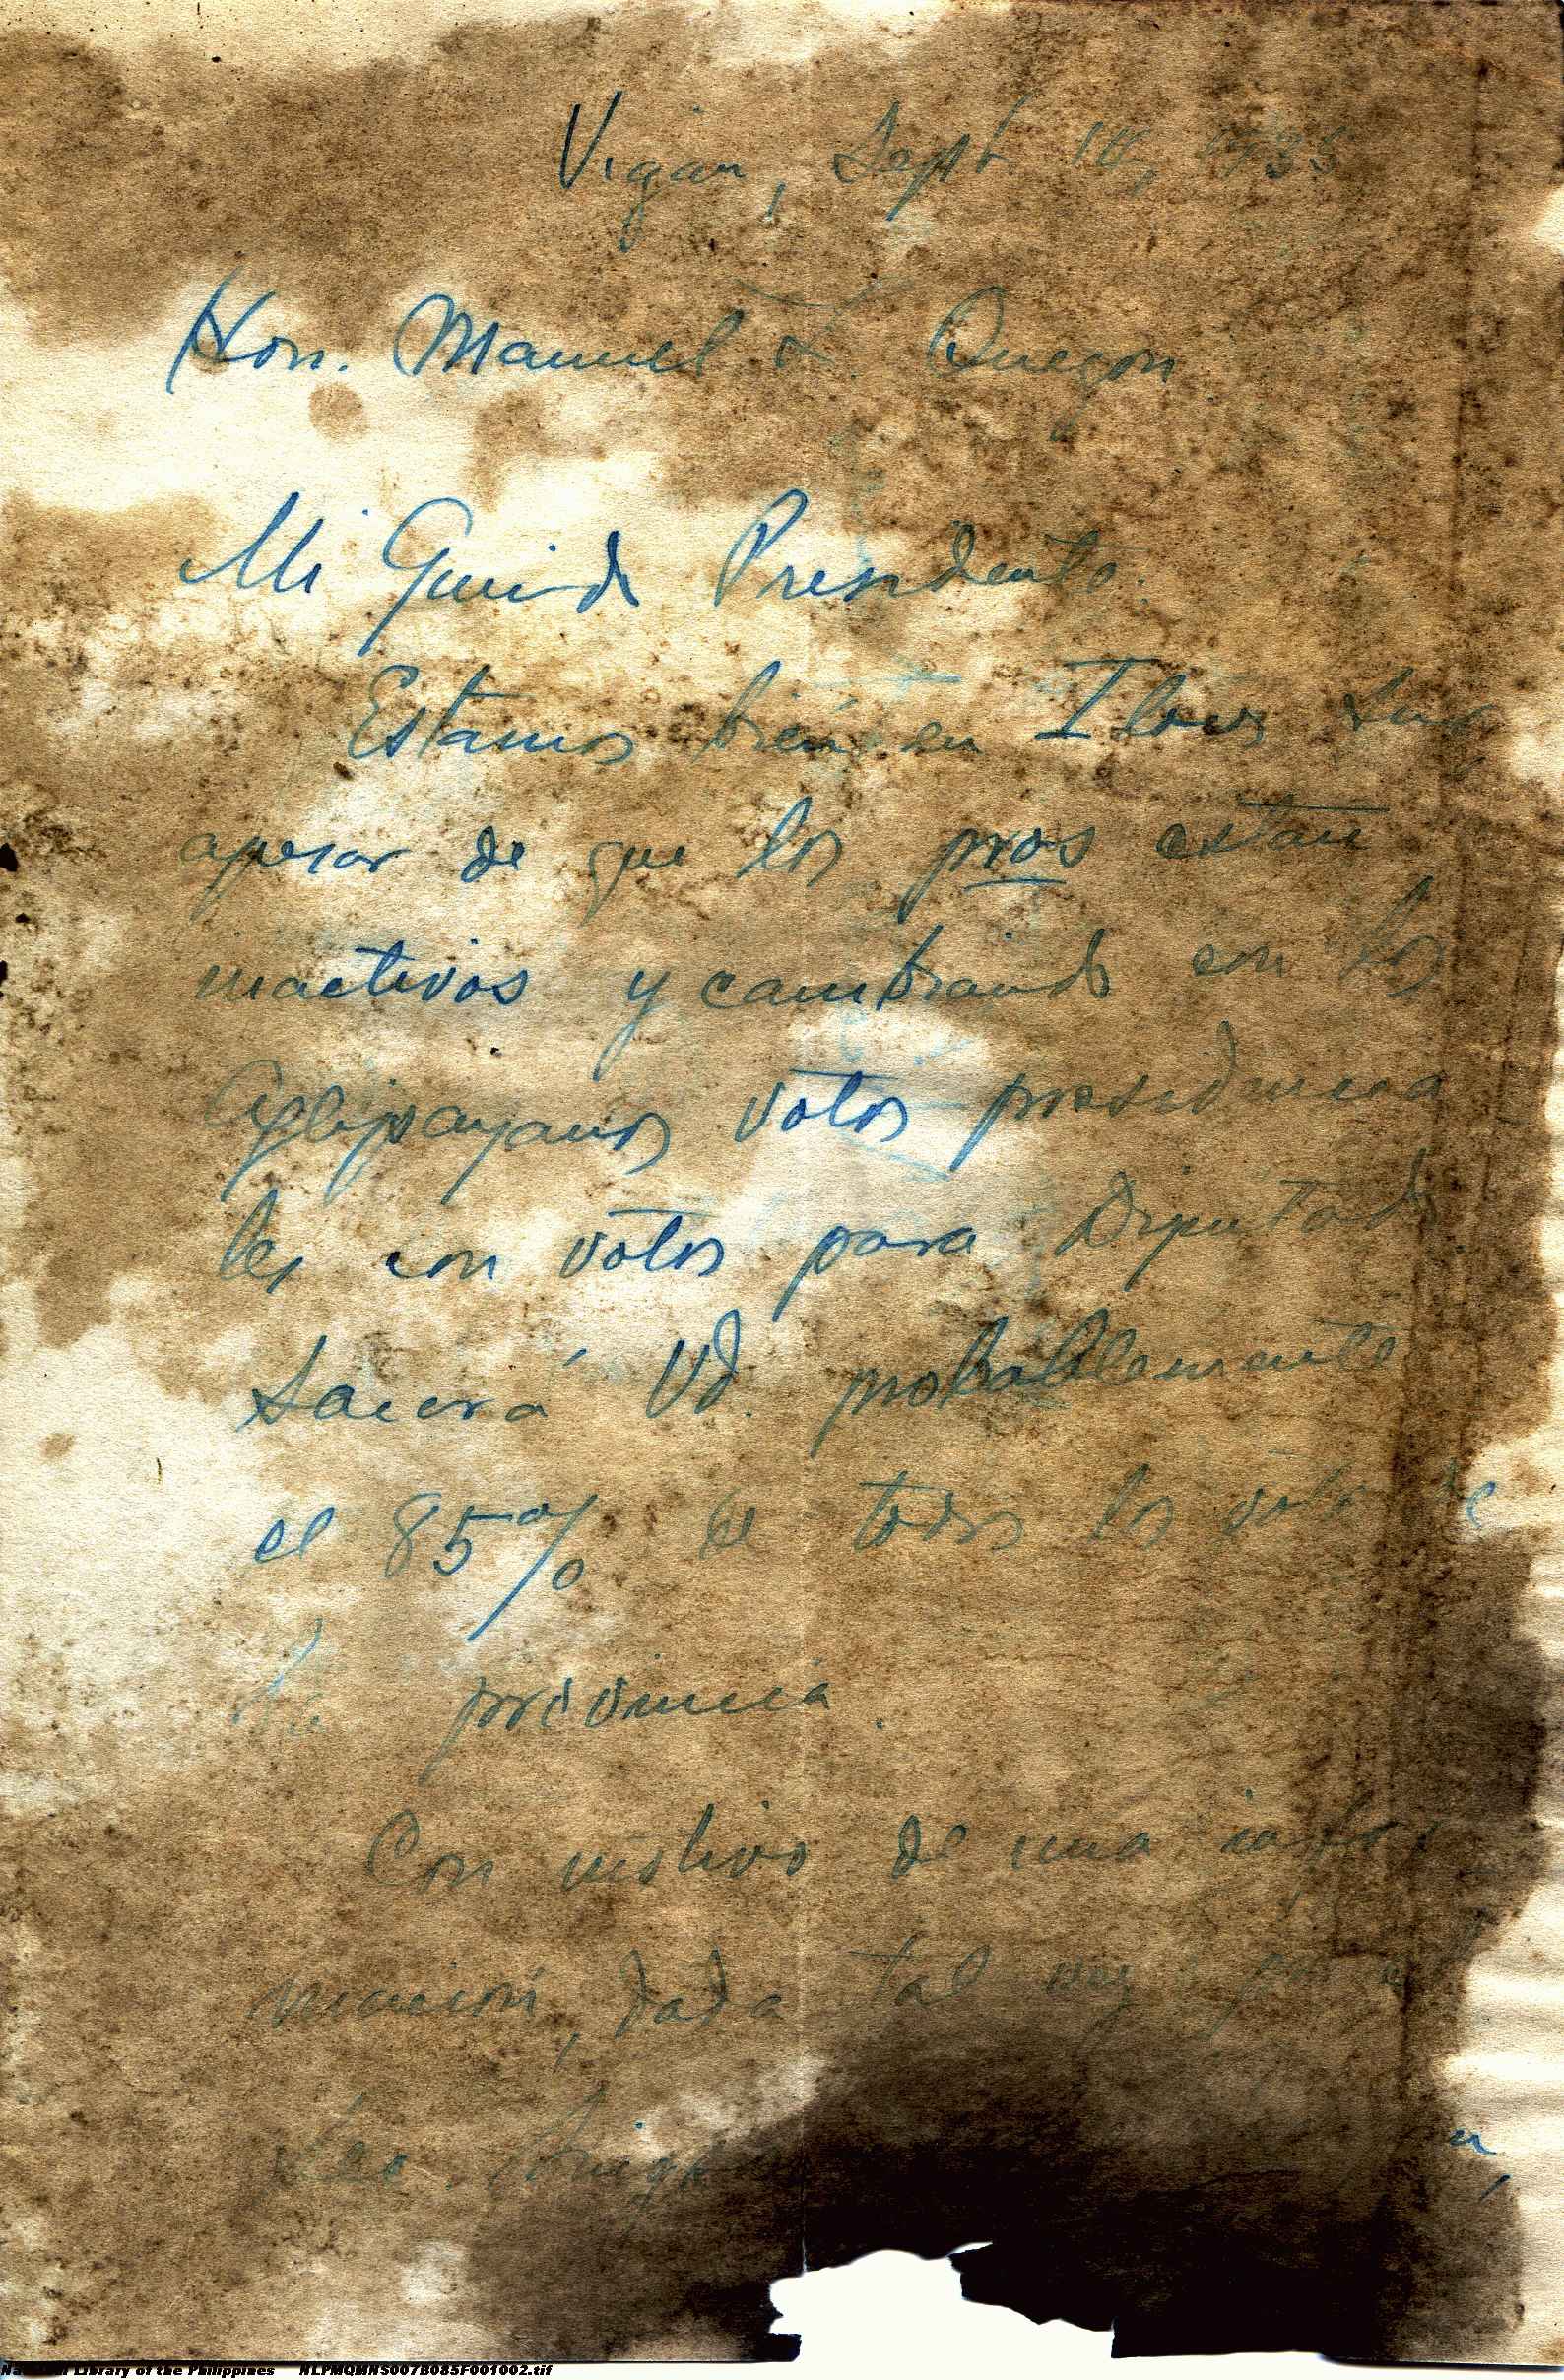 Vigan, Sept. 10, 1935
Hon. Manuel L. Quezon
Mi Querido Presidente:
Estamos bien en Ilocos Sur
apesar de que los pros estan
inactivos y cambiando con los
Aglipayanos votos presidencia
les con votos para Diputado
Sacará Vd. probablemente
el 85% de todos los votos de
la provincia.
Con motivo de una infor
macion, dada tal vez por
National Library of the Philippines NLPMQMNS007B085F001002.tif